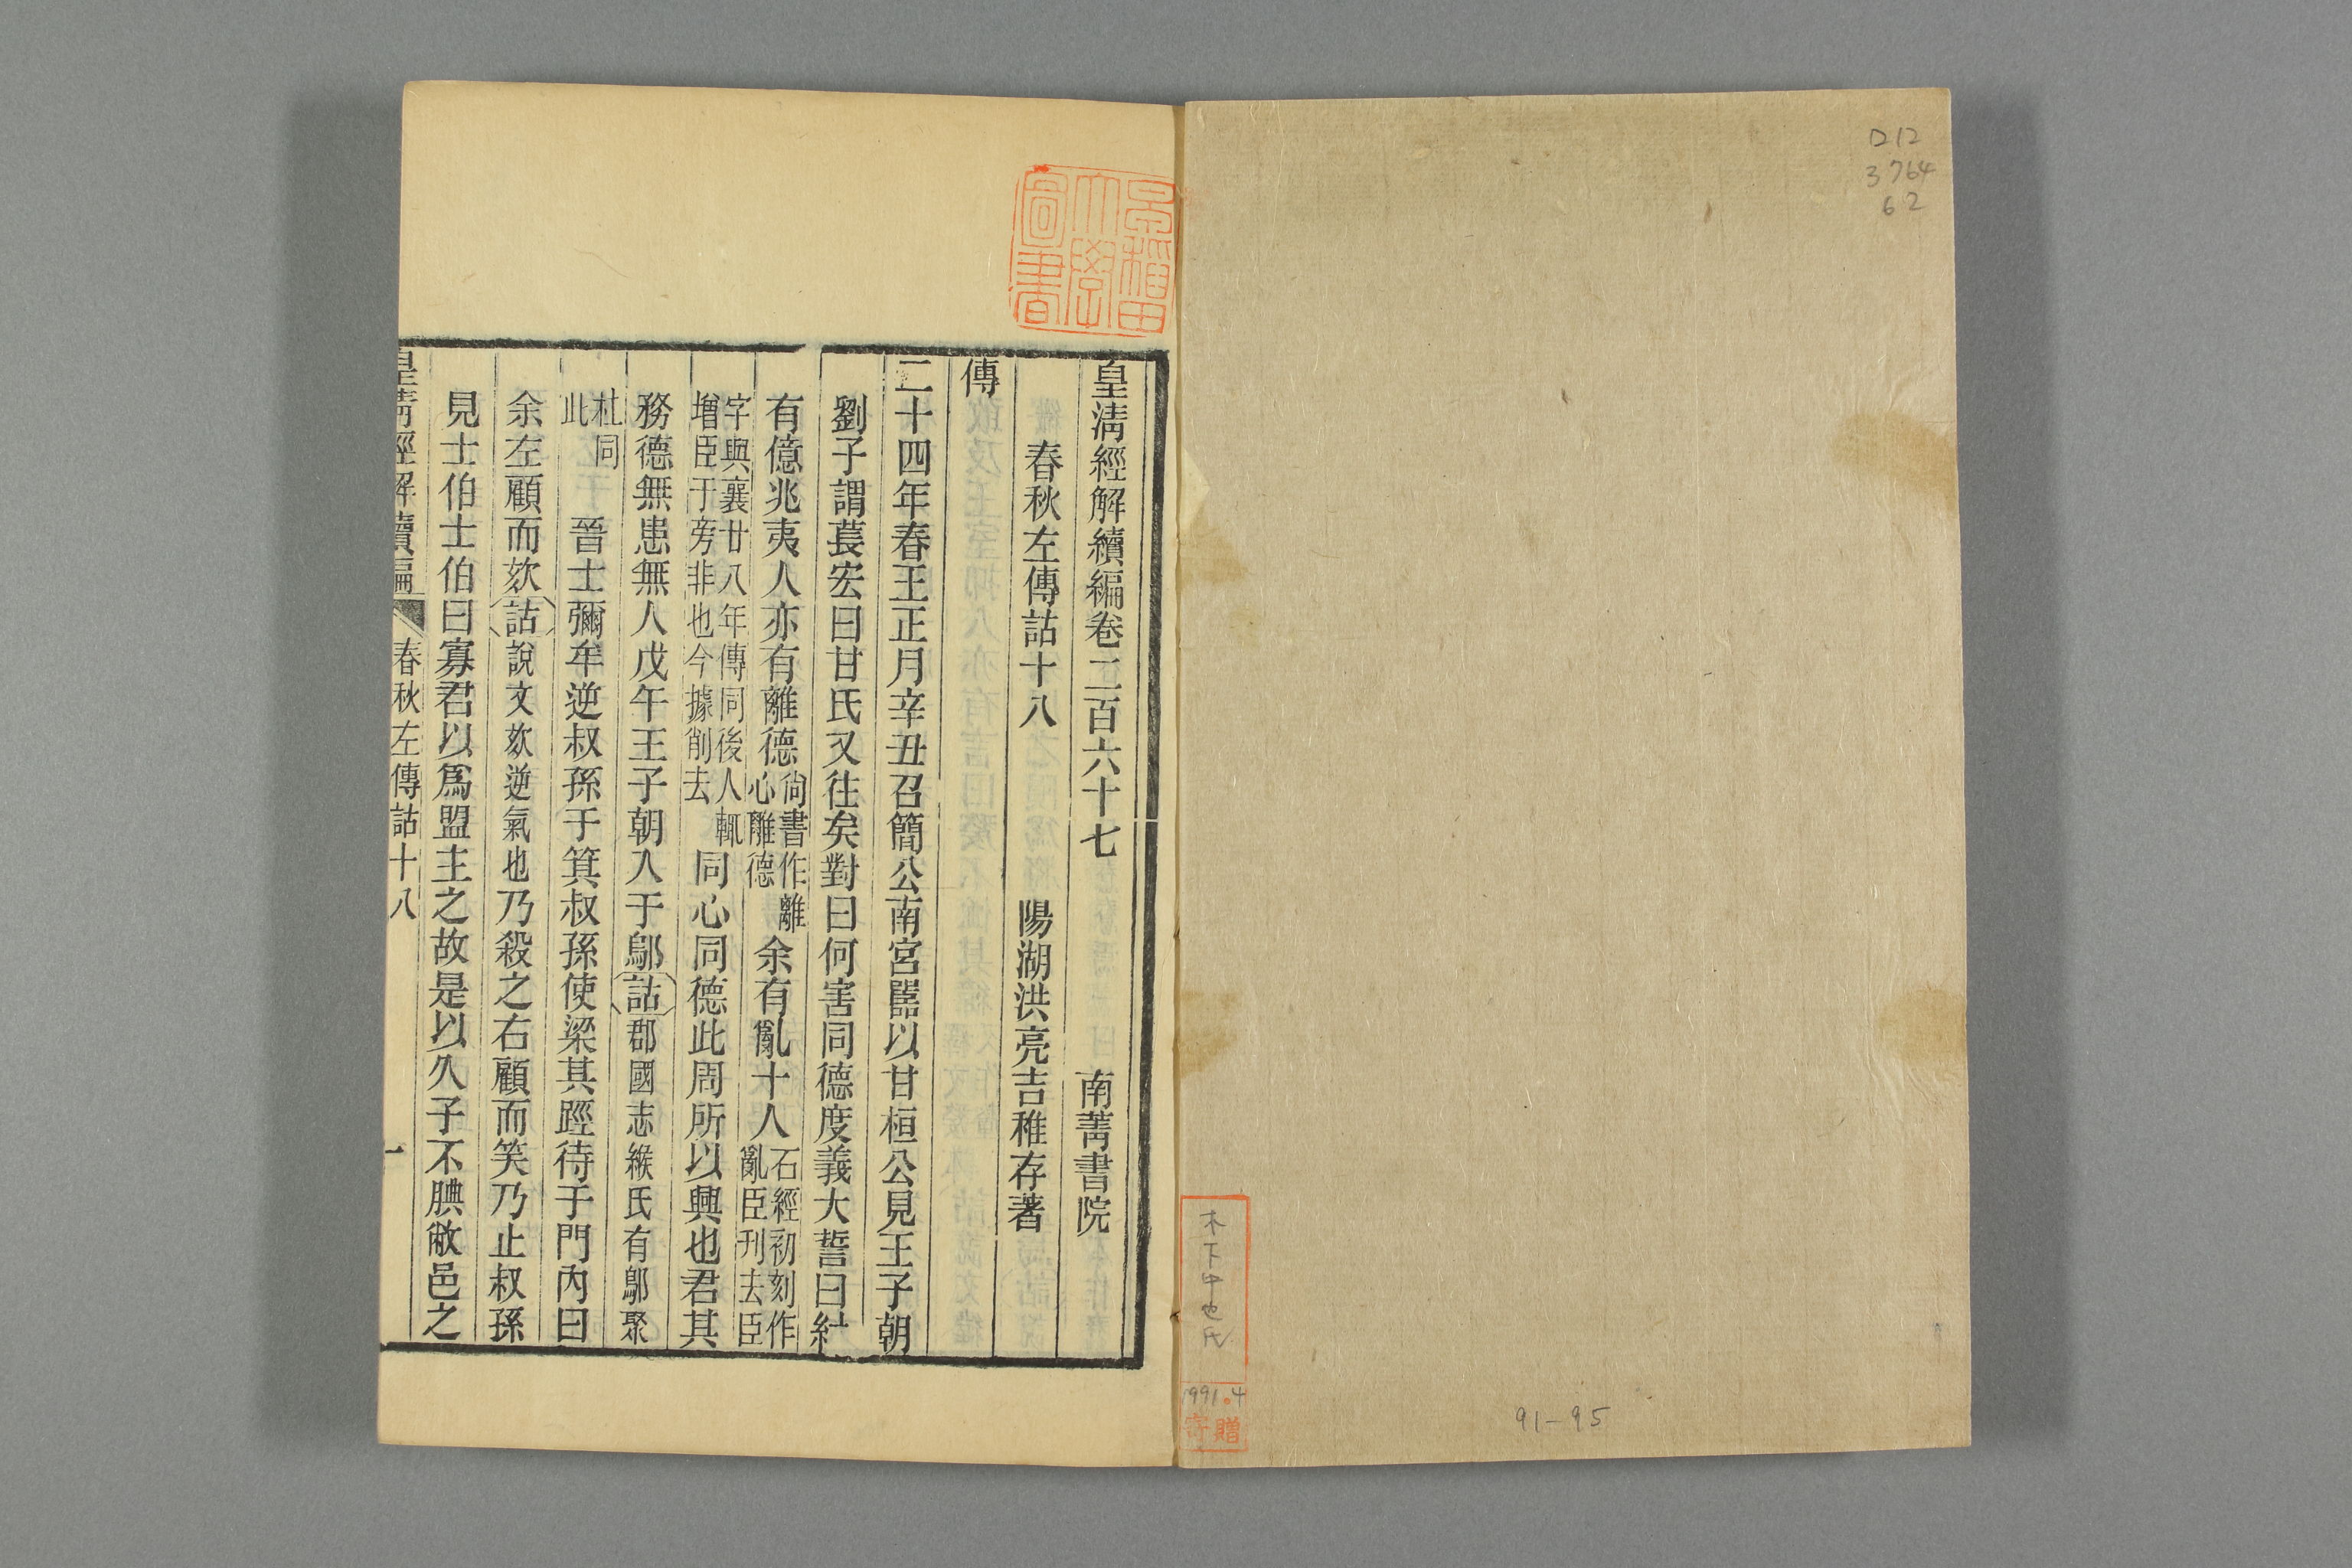 D12
3764
62
木下中也氏
1991.4
寄贈
91-95
早稲田大學圖書
皇清經解續編卷二百六十七 南菁書院
春秋左傳詁十八 陽湖洪亮吉稚存著
傳
二十四年春王正月辛丑召簡公南宮嚚以甘桓公見王子朝
劉子謂萇宏曰甘氏又往矣對曰何害同德度義大誓曰紂
有億兆夷人亦有離德尙書作離心離德余有亂十人石經初刻作亂臣刊去臣
字與襄廿八年傳同後人輒增臣于旁非也今據削去同心同德此周所以興也君其
務德無患無人戊午王子朝入于鄔詁郡國志緱氏有鄔聚
杜同此 晉士彌牟逆叔孫于箕叔孫使梁其踁待于門內曰
余左顧而欬詁說文欬逆氣也乃殺之右顧而笑乃止叔孫
見士伯士伯曰寡君以爲盟主之故是以久子不腆敝邑之
皇清經解續編 春秋左傳詁十八 一